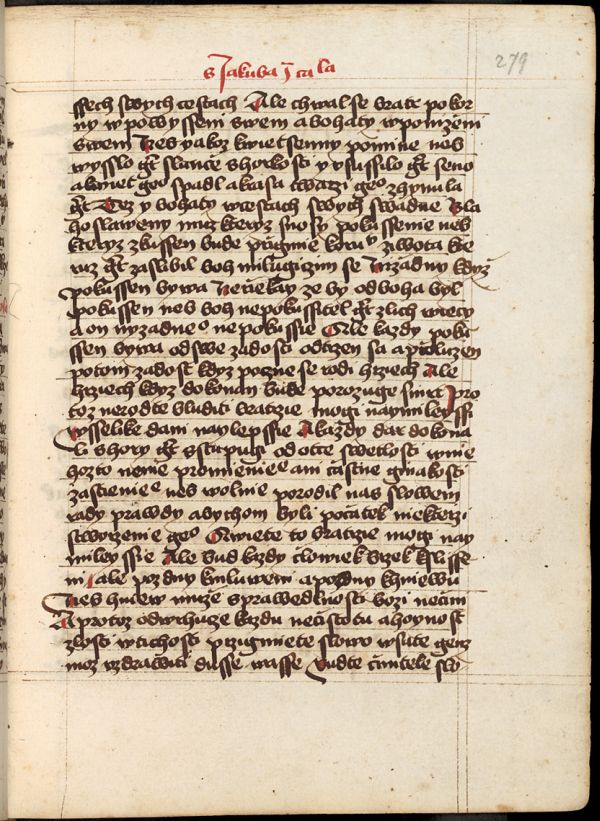 s Jakuba j cala
279
ssech swych cestach Ale chwal se bratr pokor
ny w powysseni swem a bohaty w ponizeni
swem Nes yakoz kwiet senny pomine nes
wysslo gt slunce s horkosti y ususilo gt seno
a kwiet geo spadl a krasa twarzi geo zhynula
gt Tez y bohaty w cestach swych swadne Bla
hoslaweny muz kteryz snosy pokussenie nes
kteryz zkussen bude przigme koru ziwota kte
ruz gt zaslibil boh milugicim se Nizadny kdyz
pokussen bywa Nerziekay ze by od boha byl
pokussen nes boh nepokussitel gt zlich wiecy
a on nyzadneo nepokussie Ale kazdy poku
ssen bywa od swe zadosti odtrzen sa a przeluzen
potom zadost kdyz poczne se rodi hrziech Ale
hrziech kdyz dokonan bude porozuge smrt Pro
toz nerodte bluditi bratrzie mogi naymileyssi
Wsselike dani naylepssie A kazdy dar dokona
li shory gt sstupugi od otce swetlosti w nie
hozto nenie promienieie ani czastne ginakosti
zastienie nes wolnie porodil nas slowem
rady prawdy abychom byli poczatek niekterzi
stworzenie geo Wiete to bratrzie mogi nay
mileyssie Ale bud kazdy czlowiek brzek k slisse
ni ale pozdny k mluweni a pozdny k hniewu
Nes hniew muze sprawedlnosti bozi neczini
A protoz odwrhuze kazdu neczistotu a hoynost
zlosti w tichosti przigmiete slowo wsate genz
moz uzdrawiti dusse wasse Budte czinitele slo